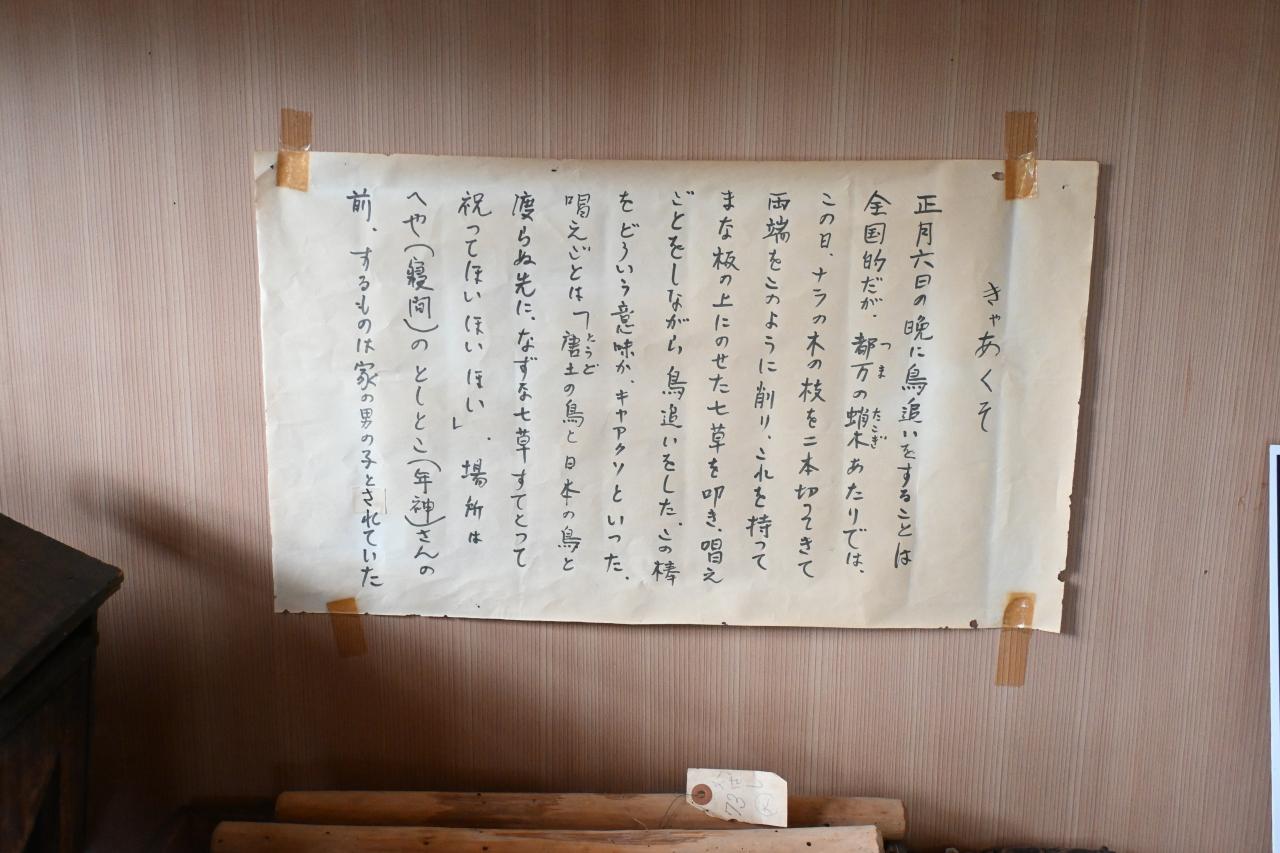 きゃあくそ
正月六日の晩に鳥追いをすることは
全国的だが、都万の蛸木あたりでは、
つま
たこぎ
この日、ナラの木の枝を二本切ってきて
両端をこのように削り、これを持って
まな板の上にのせた七草を叩き、唱え
ごとをしながら鳥追いをした。この棒
をどういう意味か、キャアクソといった。
唱えごとは「唐土の鳥と日本の鳥と
とうど
渡らぬ先に、なずな七草すてとって
祝ってほいほいほい」。場所は
へや(寝間)のとしとこ(年神)さんの
前、するものは家の男の子とされていた
73